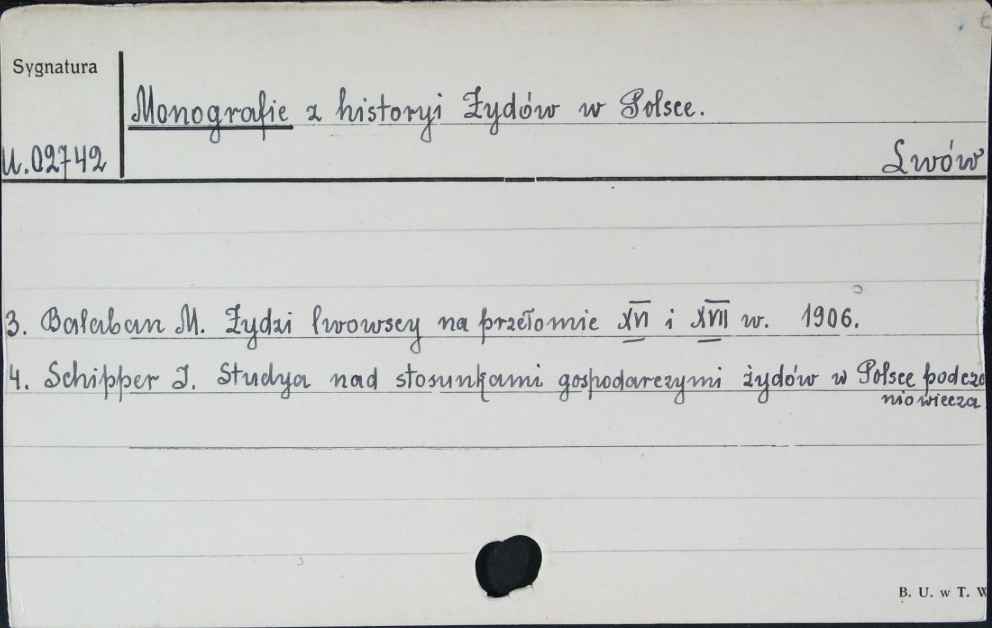 Sygnatura
Monografie z historyi Żydów w Polsce.
U.02742
Lwów
3. Bałaban M. Żydzi lwowscy na przełomie XVI i XVII w. 1906.
4. Schipper I. Studya nad stosunkami gospodarczymi żydów w Polsce podcza
niowiecza
B. U. w T. W